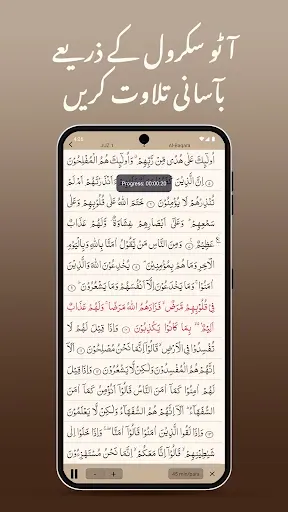 آٹو سکرول کے ذریعے
بآسانی تلاوت کریں
Juz 1 Al-Baqara
أُولَٰٓئِكَ عَلَىٰ هُدًى مِّن رَّبِّهِمْ ۖ وَأُولَٰٓئِكَ هُمُ الْمُفْلِحُونَ
إِنَّ الَّذِينَ
Progress: 00:00:20
تُنذِرْهُمْ لَا يُؤْمِنُونَ خَتَمَ اللَّهُ عَلَىٰ قُلُوبِهِمْ وَعَلَىٰ
سَمْعِهِمْ ۖ وَعَلَىٰٓ أَبْصَارِهِمْ غِشَاوَةٌ ۖ وَلَهُمْ عَذَابٌ
عَظِيمٌ وَمِنَ النَّاسِ مَن يَقُولُ ءَامَنَّا بِاللَّهِ وَبِالْيَوْمِ
الْءَاخِرِ وَمَا هُم بِمُؤْمِنِينَ يُخَٰدِعُونَ اللَّهَ وَالَّذِينَ
ءَامَنُوا۟ وَمَا يَخْدَعُونَ إِلَّآ أَنفُسَهُمْ وَمَا يَشْعُرُونَ
فِى قُلُوبِهِم مَّرَضٌ فَزَادَهُمُ اللَّهُ مَرَضًا ۖ وَلَهُمْ عَذَابٌ
أَلِيمٌۢ بِمَا كَانُوا۟ يَكْذِبُونَ وَإِذَا قِيلَ لَهُمْ لَا
تُفْسِدُوا۟ فِى الْأَرْضِ قَالُوٓا۟ إِنَّمَا نَحْنُ مُصْلِحُونَ أَلَآ
إِنَّهُمْ هُمُ الْمُفْسِدُونَ وَلَٰكِن لَّا يَشْعُرُونَ وَإِذَا قِيلَ
لَهُمْ ءَامِنُوا۟ كَمَآ ءَامَنَ النَّاسُ قَالُوٓا۟ أَنُؤْمِنُ كَمَآ ءَامَنَ
السُّفَهَآءُ ۗ أَلَآ إِنَّهُمْ هُمُ السُّفَهَآءُ وَلَٰكِن لَّا يَعْلَمُونَ
وَإِذَا لَقُوا۟ الَّذِينَ ءَامَنُوا۟ قَالُوٓا۟ ءَامَنَّا وَإِذَا خَلَوْا۟ إِلَىٰ
شَيَٰطِينِهِمْ قَالُوٓا۟ إِنَّا مَعَكُمْ إِنَّمَا نَحْنُ مُسْتَهْزِءُونَ
- +